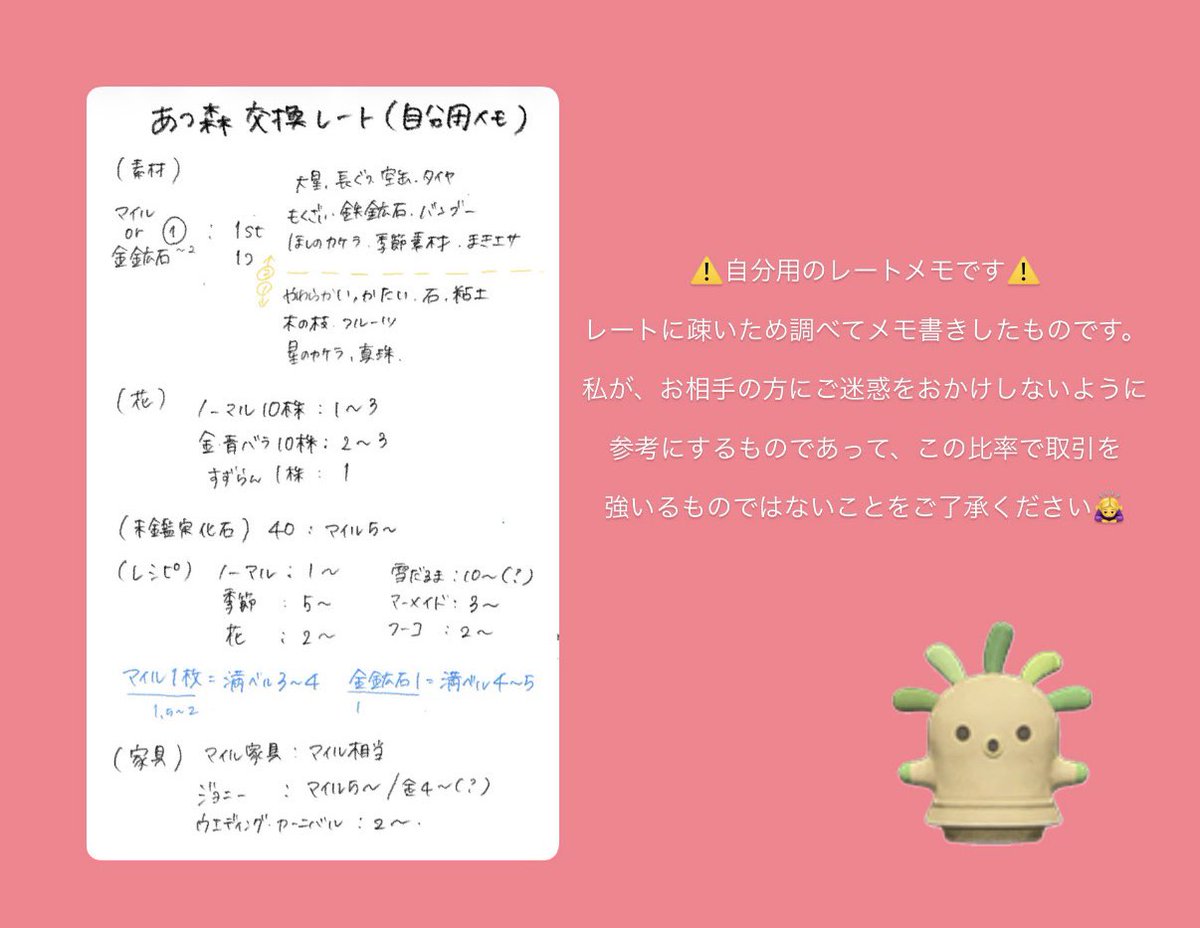 あつ森 交換レート(自分用メモ)
(素材)
マイル
or ① : 1st
金鉱石~2 1つ
大星、長ぐつ 空缶、タイヤ
もくざい、鉄鉱石、バンブー
ほしのカケラ、季節素材、まきエサ
やわらかい、かたい、石、粘土
木の枝、フルーツ
星のカケラ、真珠、
(花)
ノーマル10株 : 1~3
金・青バラ10株 : 2~3
すずらん 1株 : 1
(未鑑定化石) 40 : マイル5~
(レシピ) ノーマル : 1~
季節 : 5~
花 : 2~
雪だるま : 10~(?)
マーメイド : 3~
フーコ : 2~
マイル1枚 = 満ベル3~4 金鉱石1 = 満ベル4~5
1.5~2 1
(家具) マイル家具 : マイル相当
ジョニー : マイル5~/金4~(?)
ウエディング・カーニバル : 2~.
⚠️自分用のレートメモです⚠️
レートに疎いため調べてメモ書きしたものです。
私が、お相手の方にご迷惑をおかけしないように
参考にするものであって、この比率で取引を
強いるものではないことをご了承ください🙇‍♀️